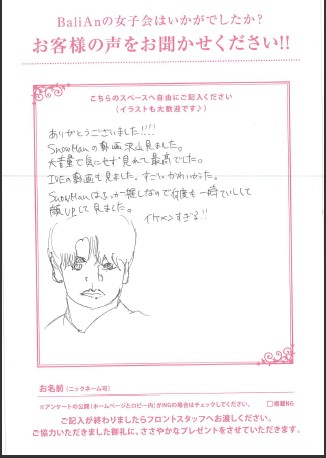 BaliAnの女子会はいかがでしたか?
お客様の声をお聞かせください!!
こちらのスペースへ自由にご記入ください
(イラストも大歓迎です♪)
ありがとうございました!!!!
SnowManの動画沢山見ました。
大音量で気にせず見れて最高でした。
IVEの動画も見ました。すごいかわいかった。
SnowManは
推しなので何度も一時てい
して
顔UPして見ました。
イケメンすぎる!!
お名前(ニックネーム可)
※アンケートの公開(ホームページとロビー内)がNGの場合はチェックしてください。
□掲載NG
ご記入が終わりましたらフロントスタッフへお渡しください。
ご協力いただきました御礼に、ささやかなプレゼントをさせていただきます。